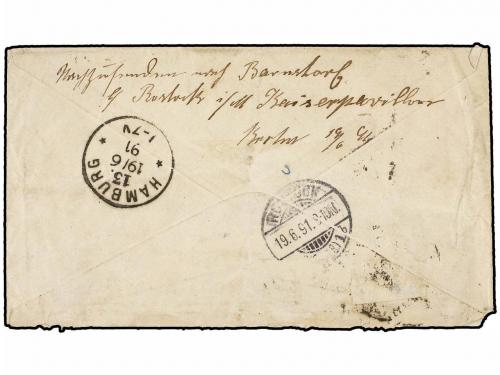 Nachzusenden nach Barnstorf
b/ Rostock i/M Kaiserpavillon
Berlin 19/6
HAMBURG
13
19/6
91
1-7V
19.6.91.9-10N.